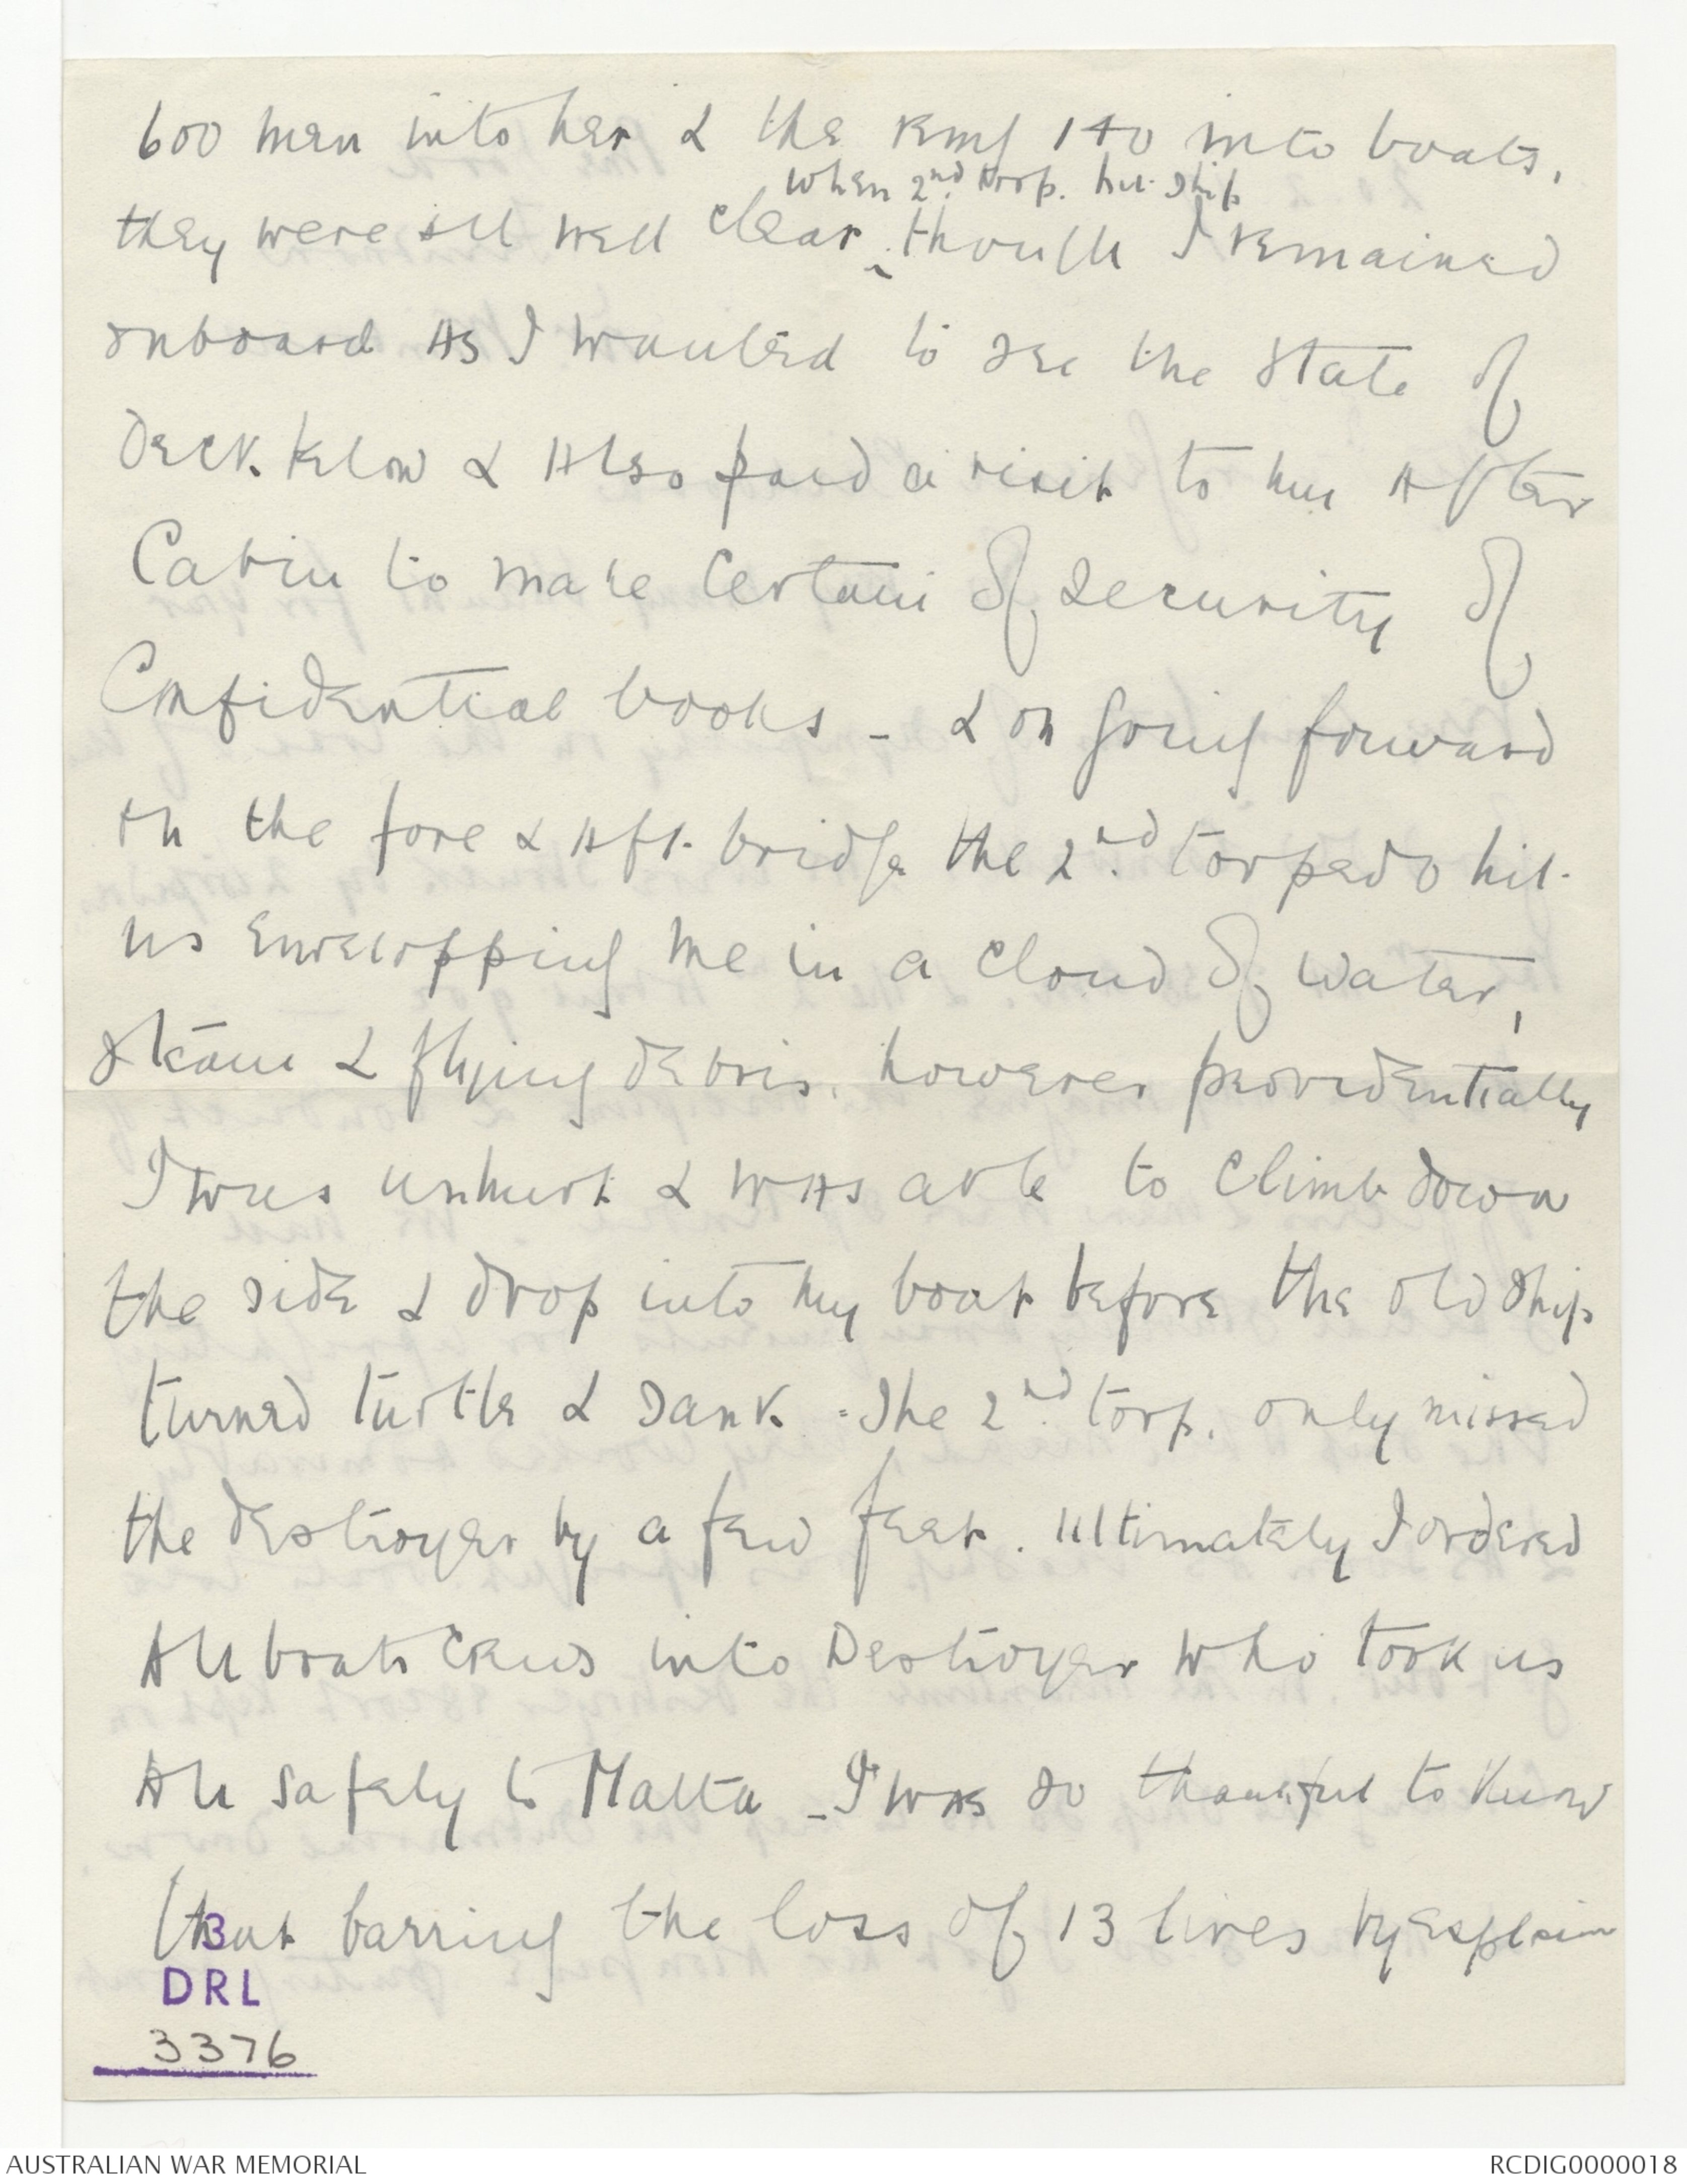 600 men into her & the remg 140 into boats,
when 2nd. torp. hit ship
they were all well clear ^ though I remained
onboard as I wanted to see the state of
deck below & also paid a visit to my after
Cabin to make certain of security of
Confidential books - & on going forward
on the fore & aft bridge the 2nd. torpedo hit
us envelopping me in a cloud of water,
steam & flying debris. however providentially
I was unhurt & was able to climb down
the side & drop into my boat before the old ship
turned turtle & sank - The 2nd. torp. only missed
the destroyer by a few feet. Ultimately I ordered
all boats crews into Destroyer who took us
all safely to Malta - I was so thankful to know
that barring the loss of 13 lives by explosion
3
DRL
3376
AUSTRALIAN WAR MEMORIAL
RCDIG0000018